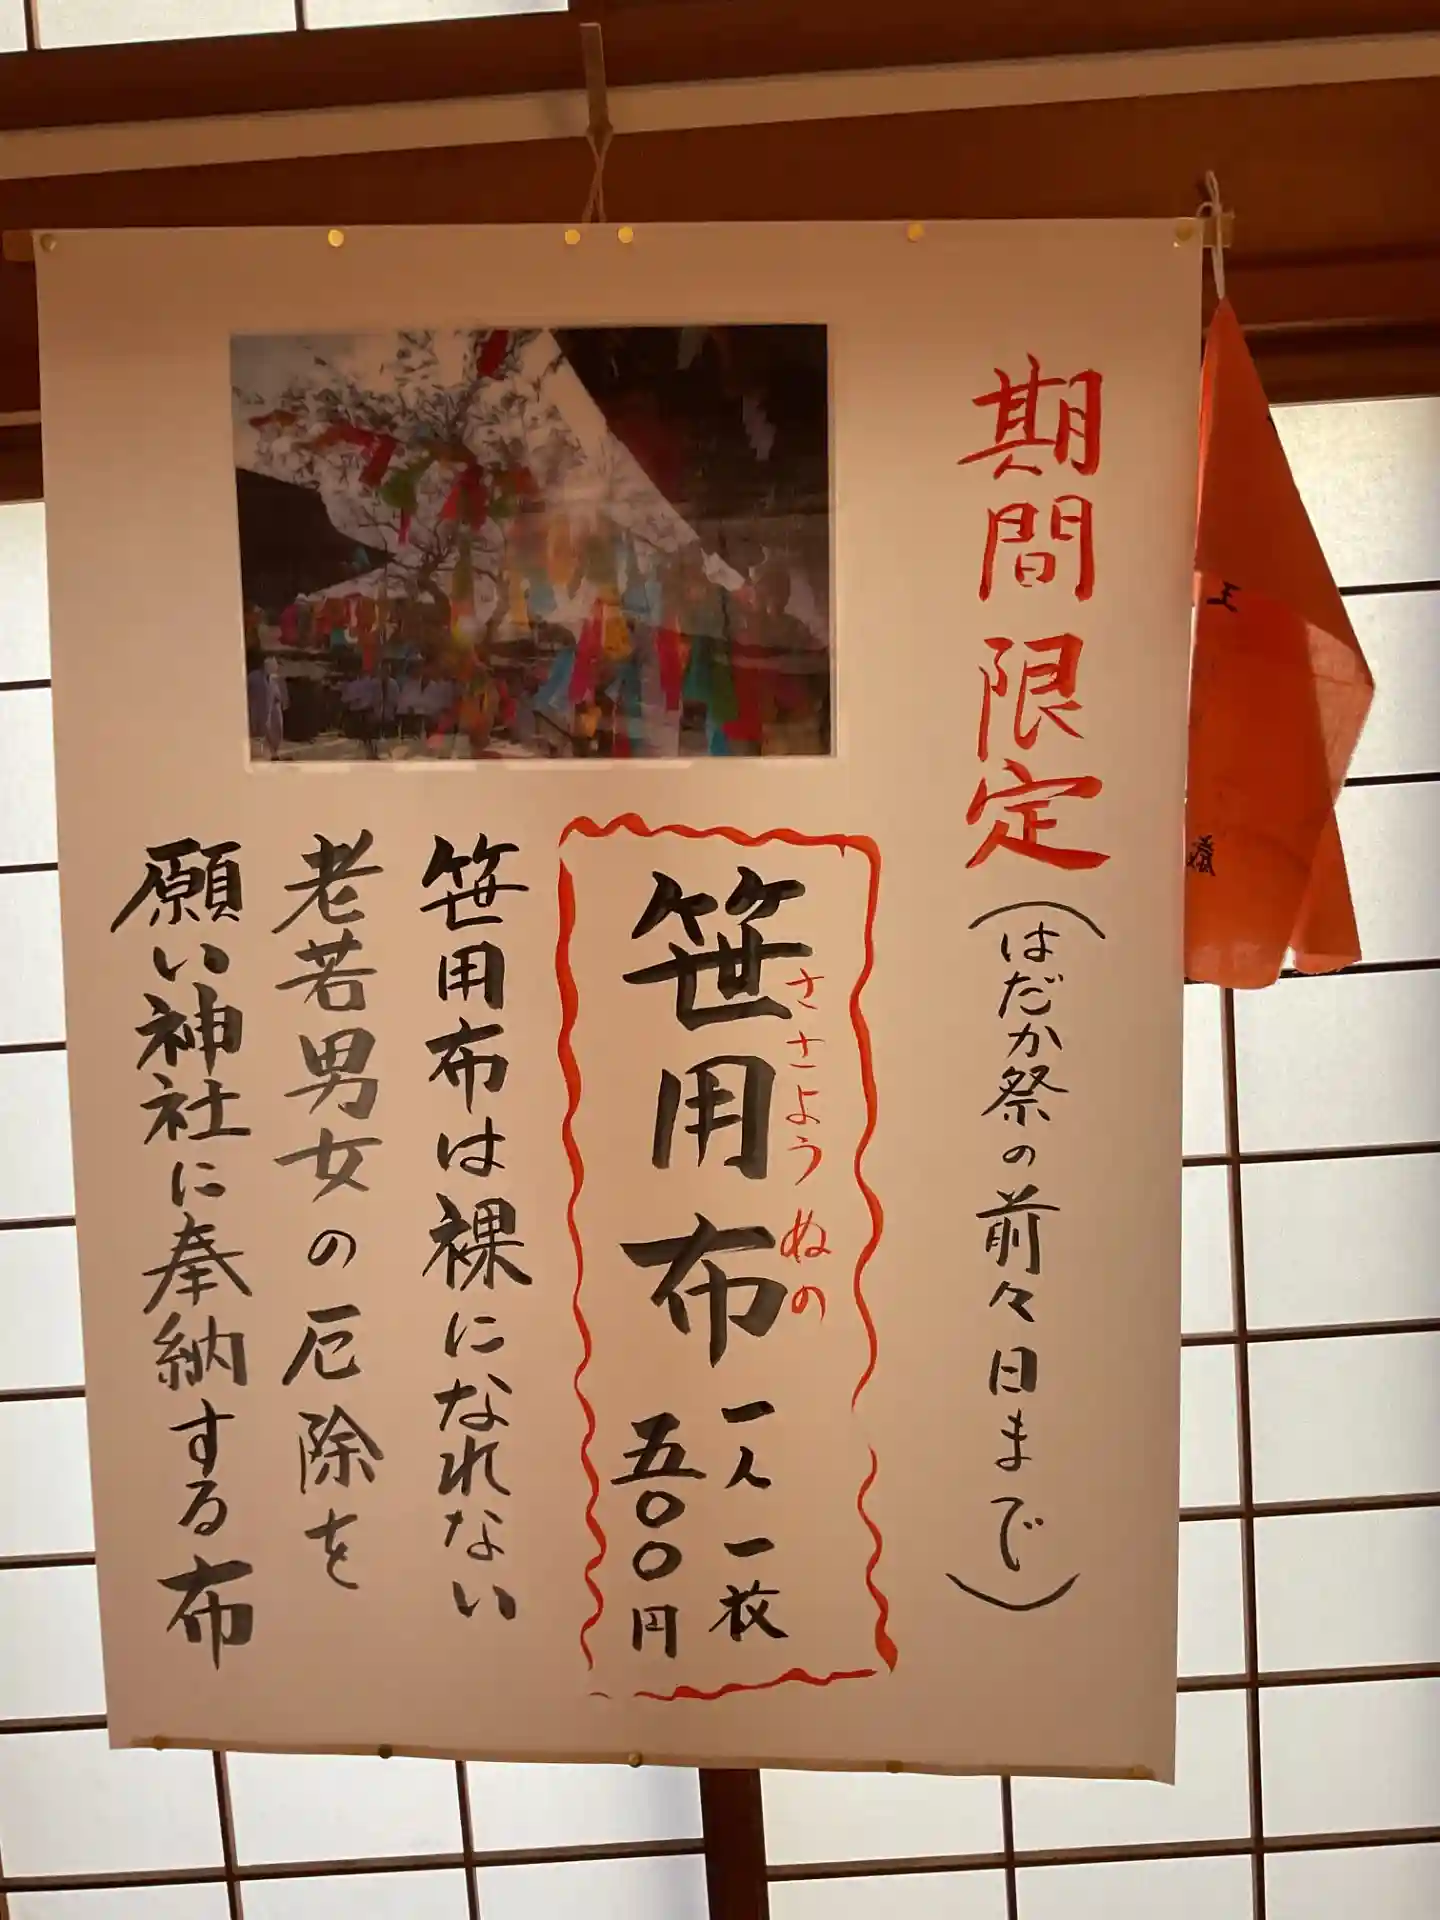 期間限定(はだか祭の前々日まで)
笹用布
ささようぬの
一人一枚
五〇〇円
笹用布は裸になれない
老若男女の厄除を
願い神社に奉納する布